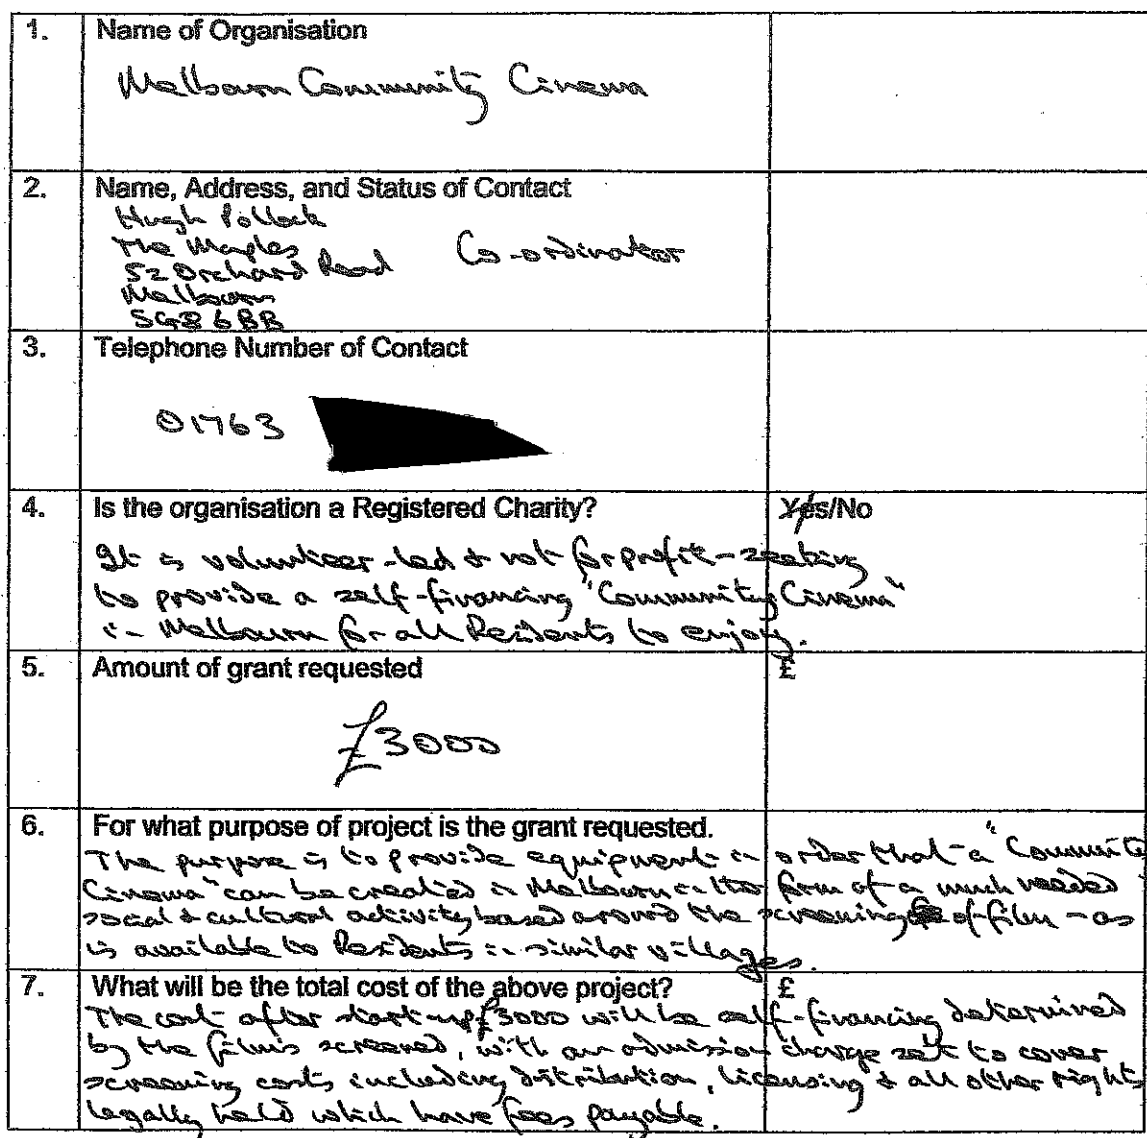 1. Name of Organisation
Melbourn Community Cinema
2. Name, Address, and Status of Contact
Hugh Pollock
The Maples
52 Orchard Road Co-ordinator
Melbourn
SG8 6BB
3. Telephone Number of Contact
01763
4. Is the organisation a Registered Charity? Yes/No
It is volunteer-led & not for profit - seeking
to provide a self-financing "Community Cinema"
in Melbourn for all Residents to enjoy.
5. Amount of grant requested £
£3000
6. For what purpose of project is the grant requested.
The purpose is to provide equipment in order that a "Community
Cinema" can be created in Melbourn in the form of a much needed
social & cultural activity based around the screening of film - as
is available to Residents in similar villages.
7. What will be the total cost of the above project? £
The cost after start-up £3000 will be self-financing determined
by the films screened, with an admission charge set to cover
screening costs including distribution, licensing & all other rights
legally held which have fees payable.